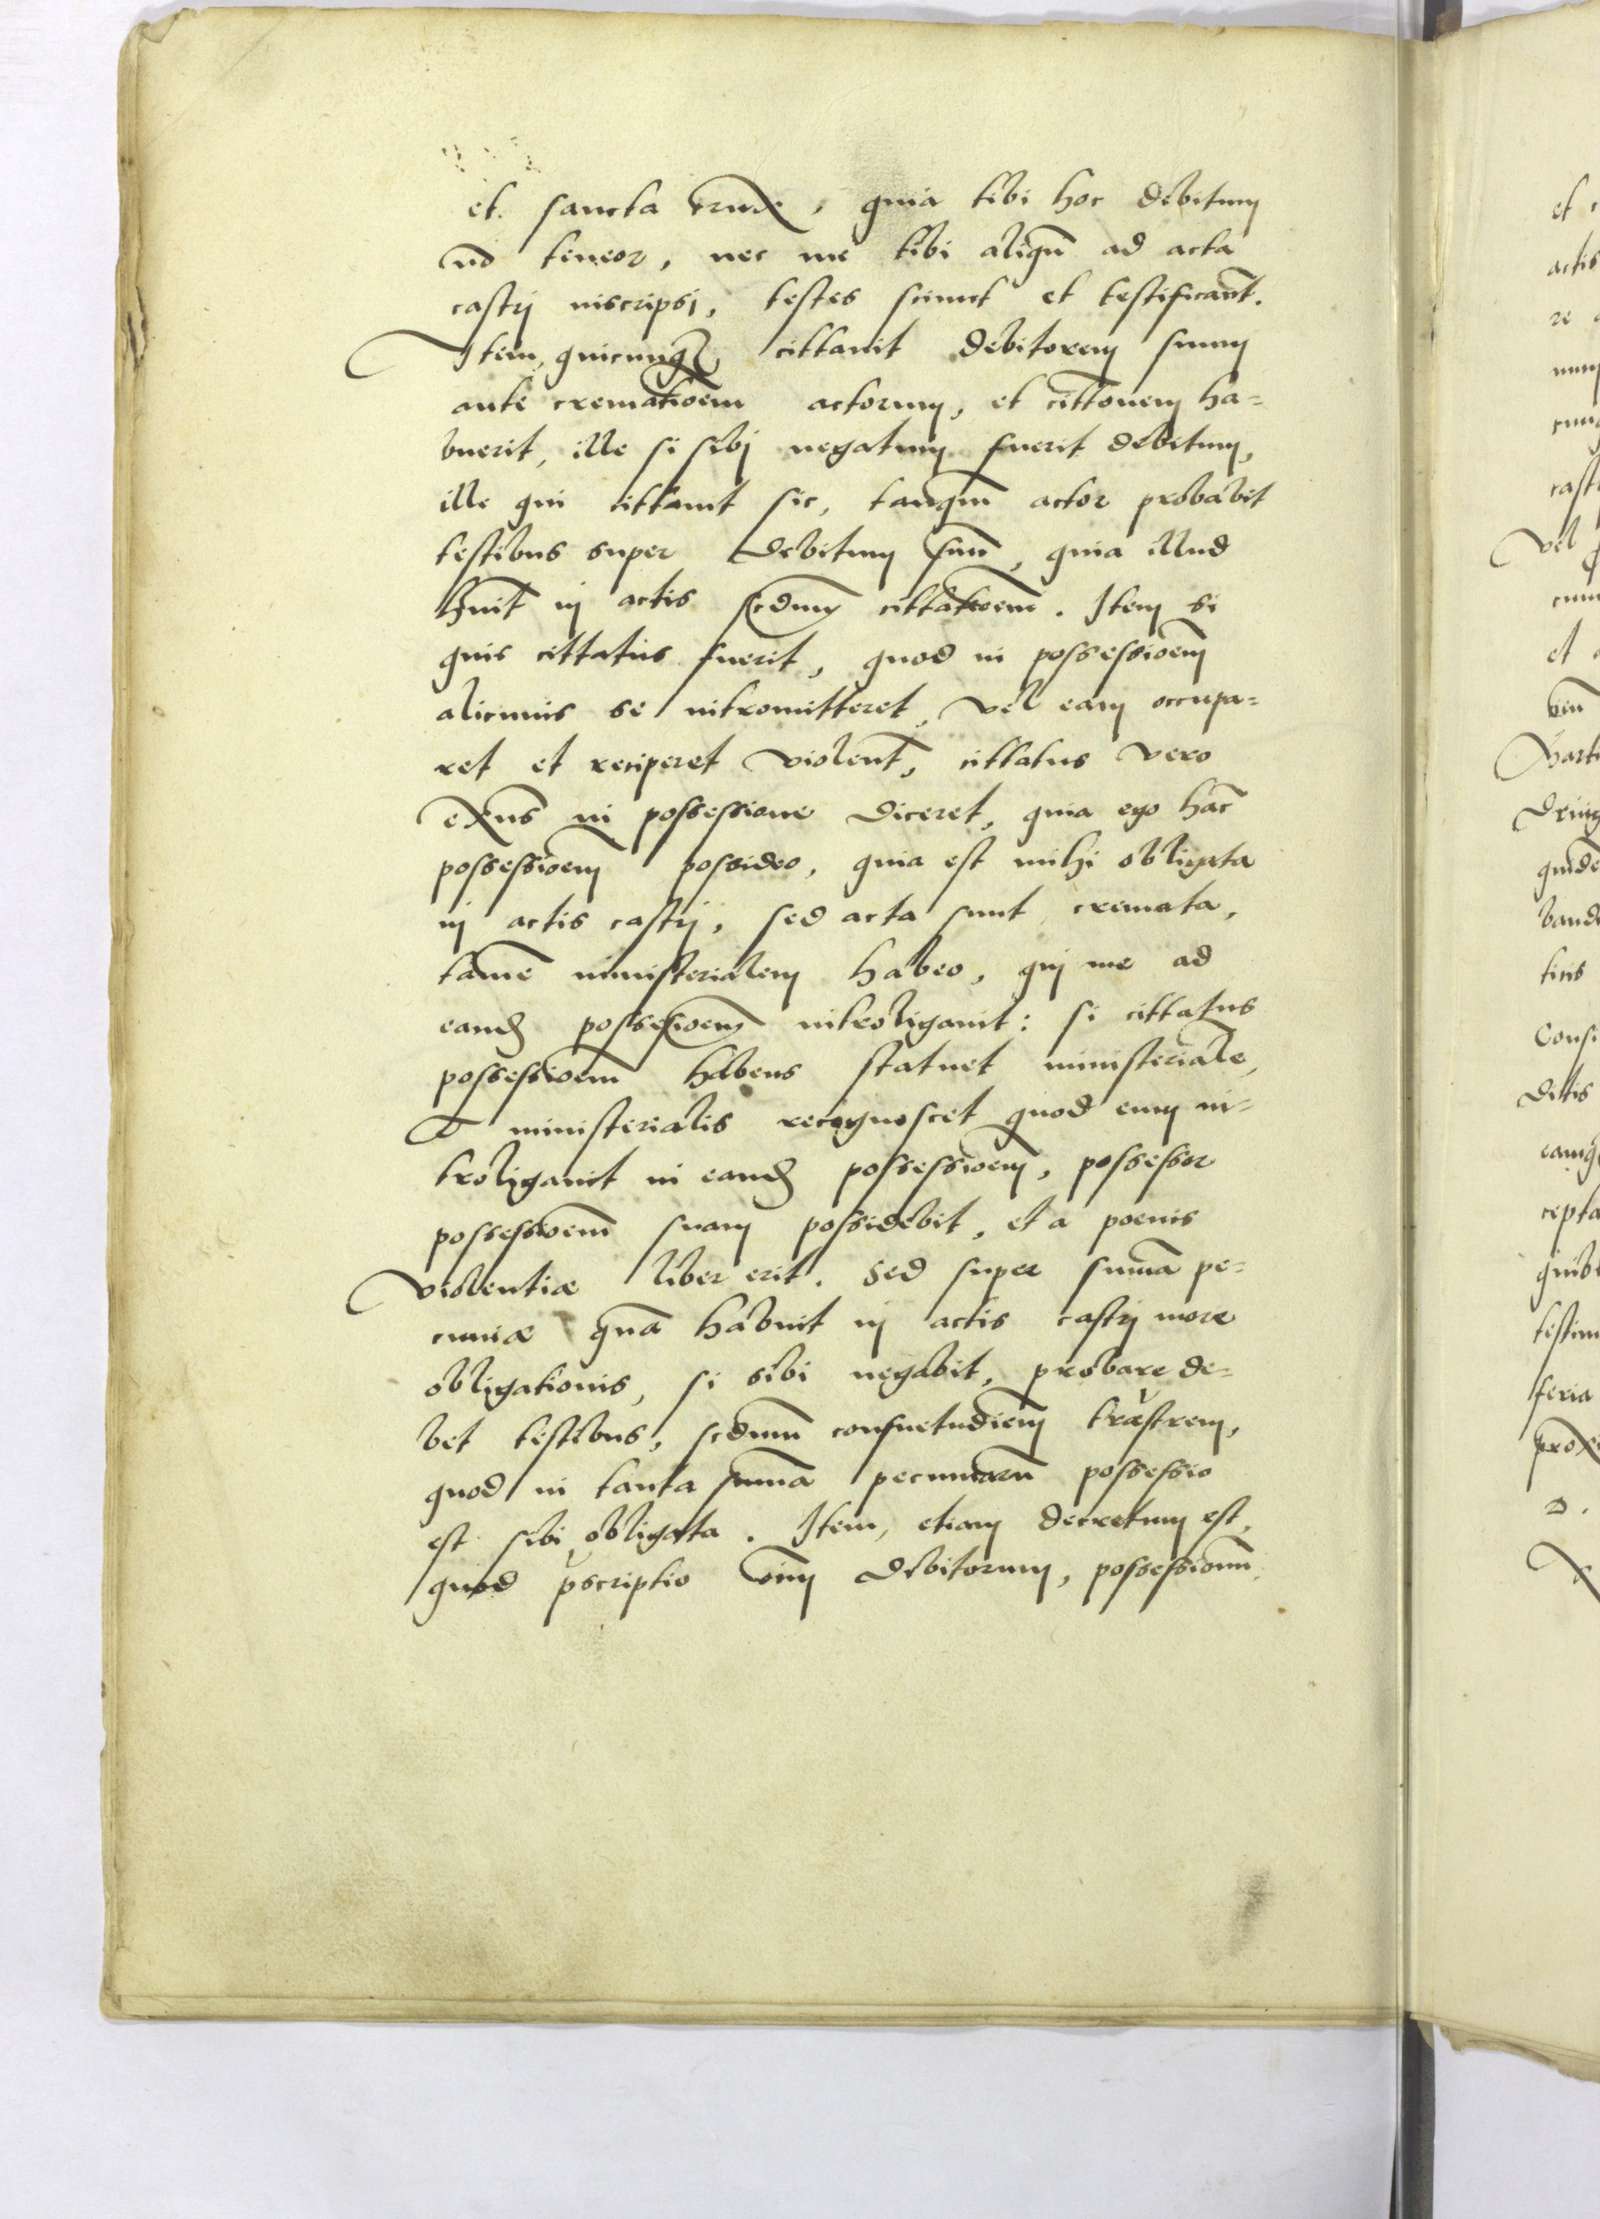 et sancta crux, quia tibi hoc debitum
nō teneor, nec me tibi aliqn̄ ad acta
castrj inscripsj, testes sciunt et testificant̄.
Item, quicunqȝ cittauit debitorem suum
ante crematioem̄ actorum, et citt̄onem ha=
buerit, ille si sibj negatum fuerit debitum,
ille qui cittauit sic, tanqm̄ actor probabit
testibus super debitum suū, quia illud
hūit in actis scdm̄ cittatioem̄. Item si
quis cittatus fuerit, quod in possessioēm
alicuius se intromitteret, vel eam occupa=
ret et reciperet violent̄, cittatus vero
exn̄s in possessione diceret, quia ego hāc
possessioēm possideo, quia est mihi obligata
in actis castrj, sed acta sunt cremata,
tamē ministerialem habeo, qui me ad
eandȝ possessioēm introligauit: si cittatus
possessioēm habens statuet ministeriale,
et ministerialis recognoscet quod eum in=
troligauit in eandȝ possessioēm, possessor
possessioēm suam possidebit, et a poenis
violentiæ liber erit. Sed super sum̄a pe=
cuniæ quā habuit in actis castrj more
obligationis, si sibi negabit, probare de=
bet testibus, scdum̄ consuetudiēm trr̄astrem,
quod in tanta sum̄a pecuniarū possessio
est sibi obligata. Item, etiam decretum est,
quod p̄scriptio oīm debitorum, possessionū